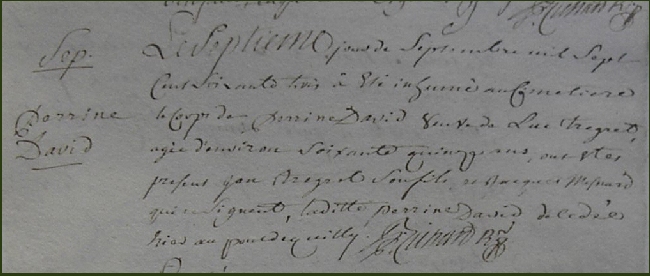 Sep.
Perrine
David
Le Septieme jour de Septembre mil Sept
Cent soixante trois à Eté inhumé au Cimetiere
le Corps de perrine David Veuve de Luc
agée d'environ Soixante quinze ans, ont Etes
present jan Son fils et jacques
qui ne Signent, laditte perrine David decedée
hier au